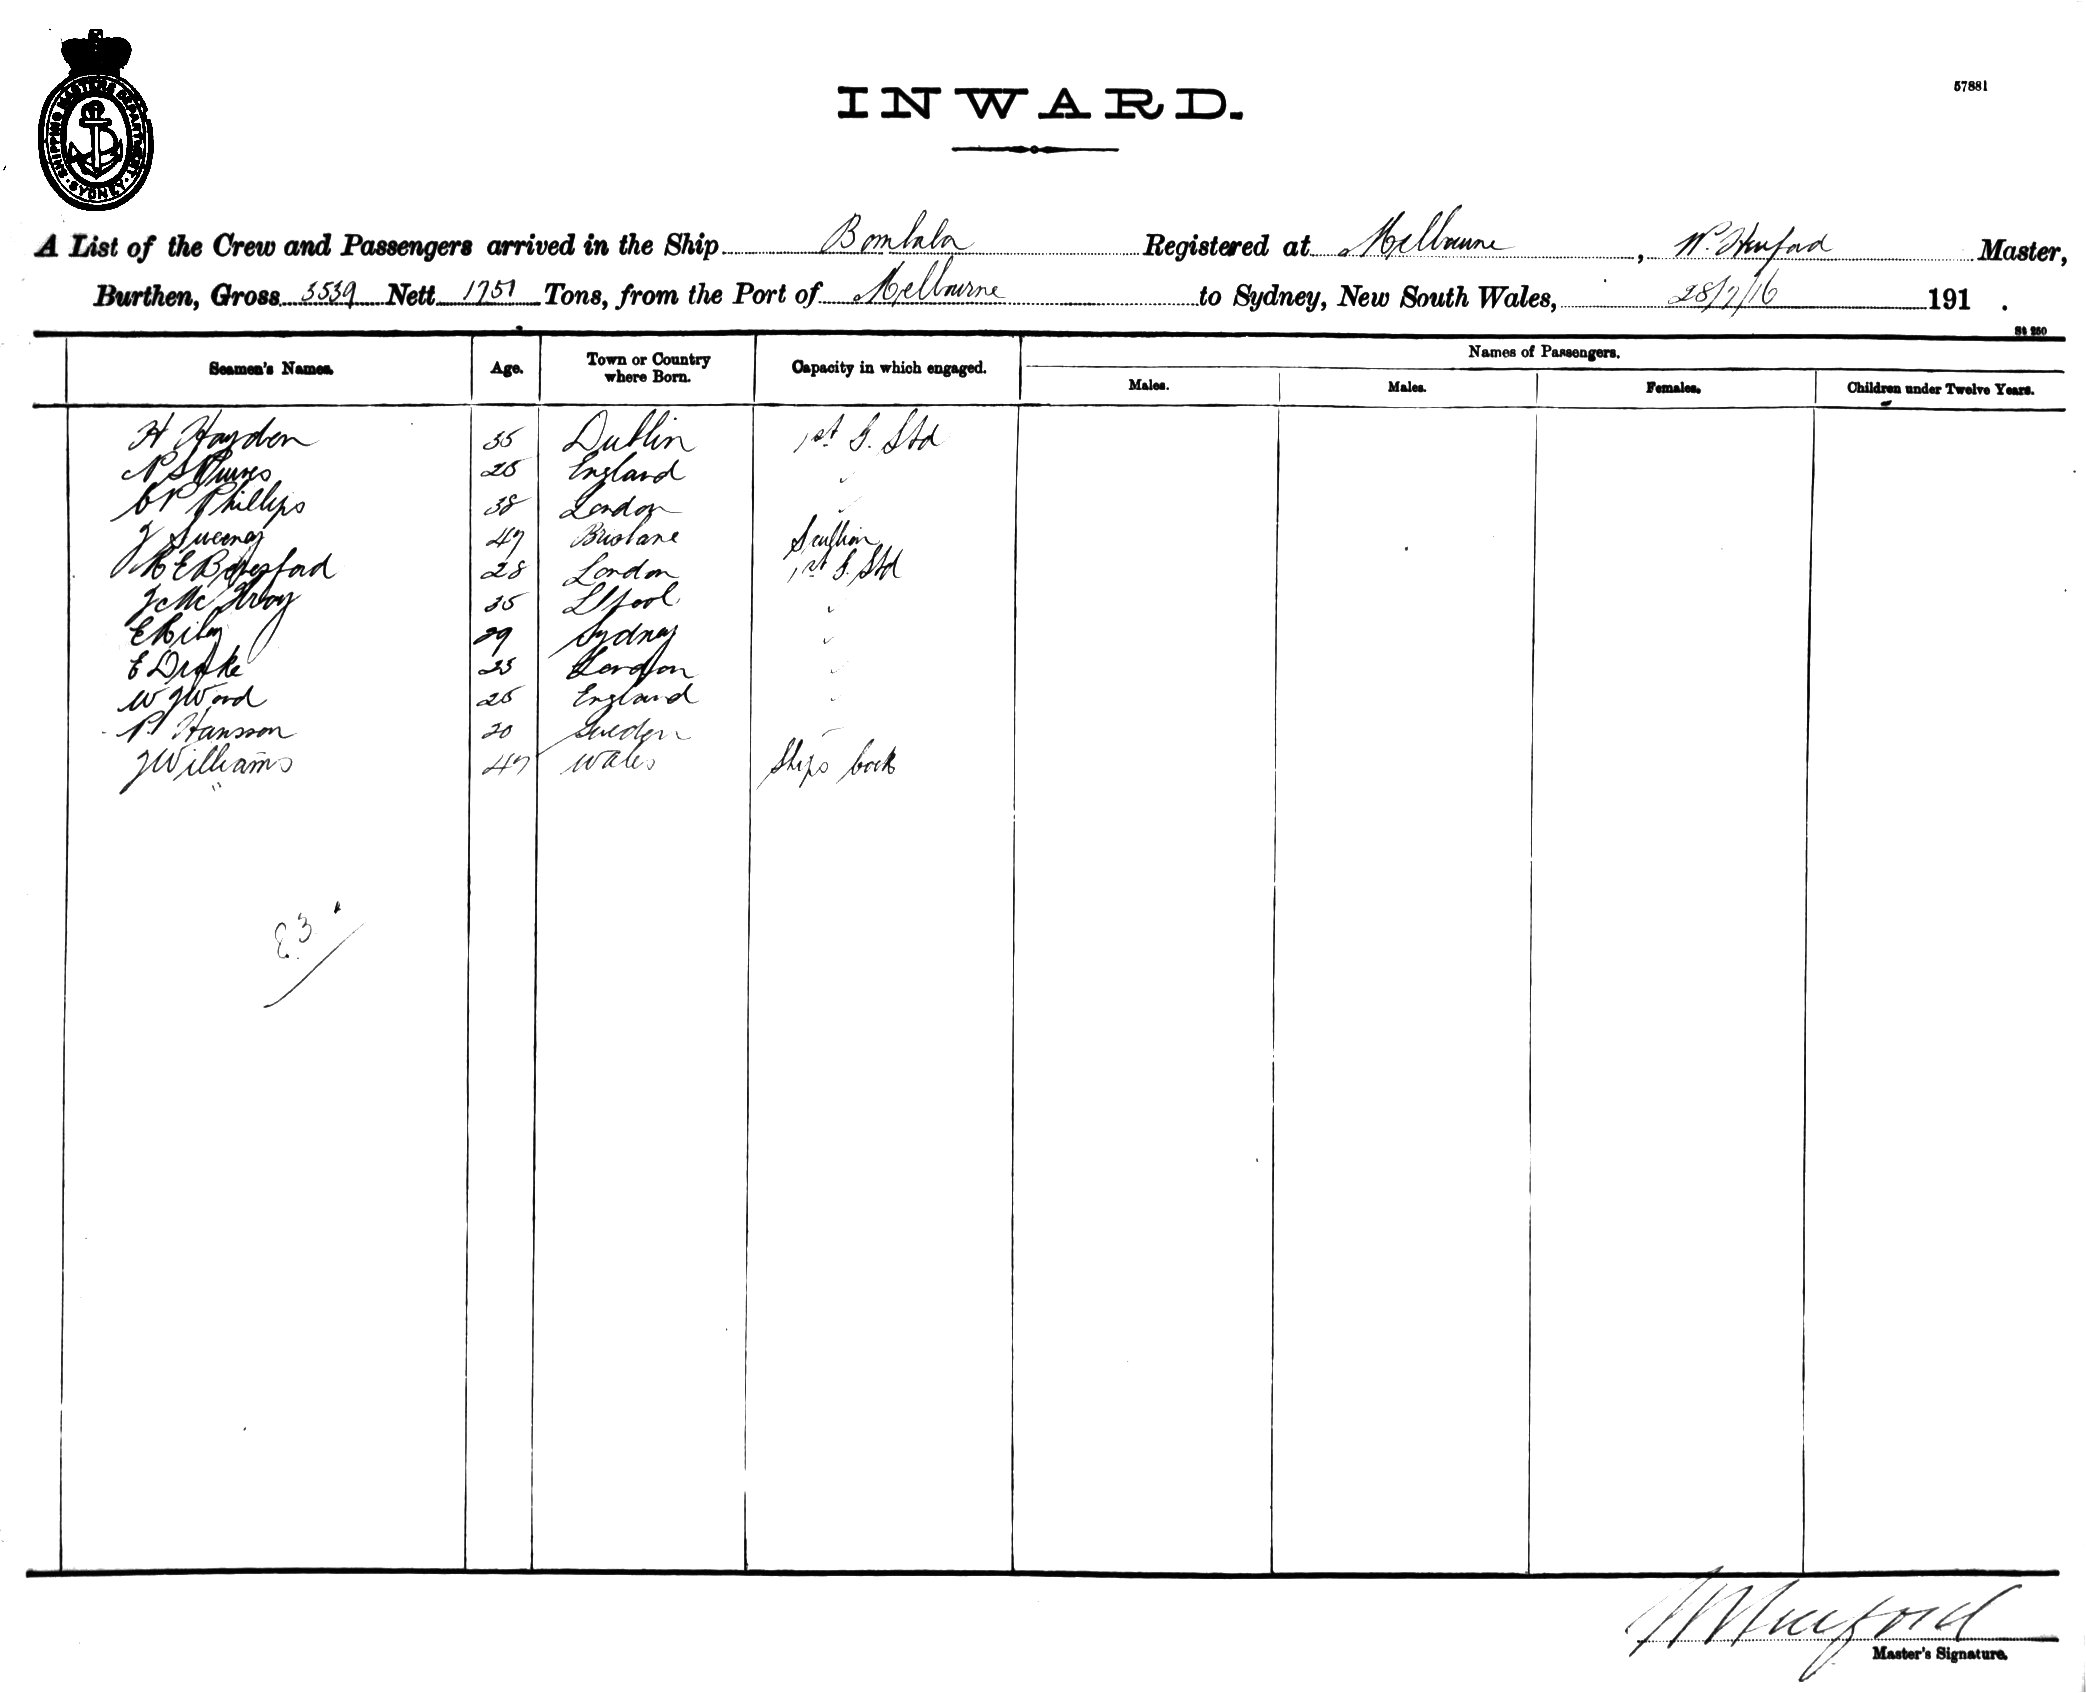 SHIPPING MASTERS DEPARTMENT · SYDNEY ·
INWARD.
57881
A List of the Crew and Passengers arrived in the Ship Bombala Registered at Melbourne, W. Hurford Master,
Burthen, Gross 3539 Nett 1751 Tons, from the Port of Melbourne to Sydney, New South Wales, 28/7/16 191 .
St 250
Seamen's Names. Age. Town or Country where Born. Capacity in which engaged. Names of Passengers.
Males. Males. Females. Children under Twelve Years.
H Hayden 35 Dublin 1st G. Std
25 England "
C P Phillips 38 London "
J Sweeney 47 Brisbane Scullion
R E Beresford 28 London 1st G. Std
J Mc 35 L'pool "
E Riley 29 Sydney "
E Drake 23 London "
W J Ward 25 England "
P. Hansson 20 Sweden "
J Williams 47 Wales Ships Cook
83
W Hurford
Master's Signature.